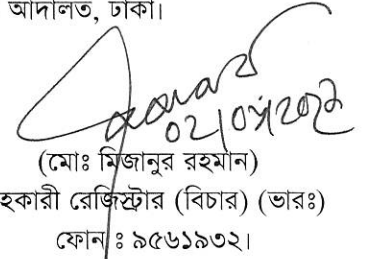 আদালত, ঢাকা।
(মোঃ মিজানুর রহমান)
হকারী রেজিস্ট্রার (বিচার) (ভারঃ)
ফোন ঃ ৯৫৬১৯৩২।